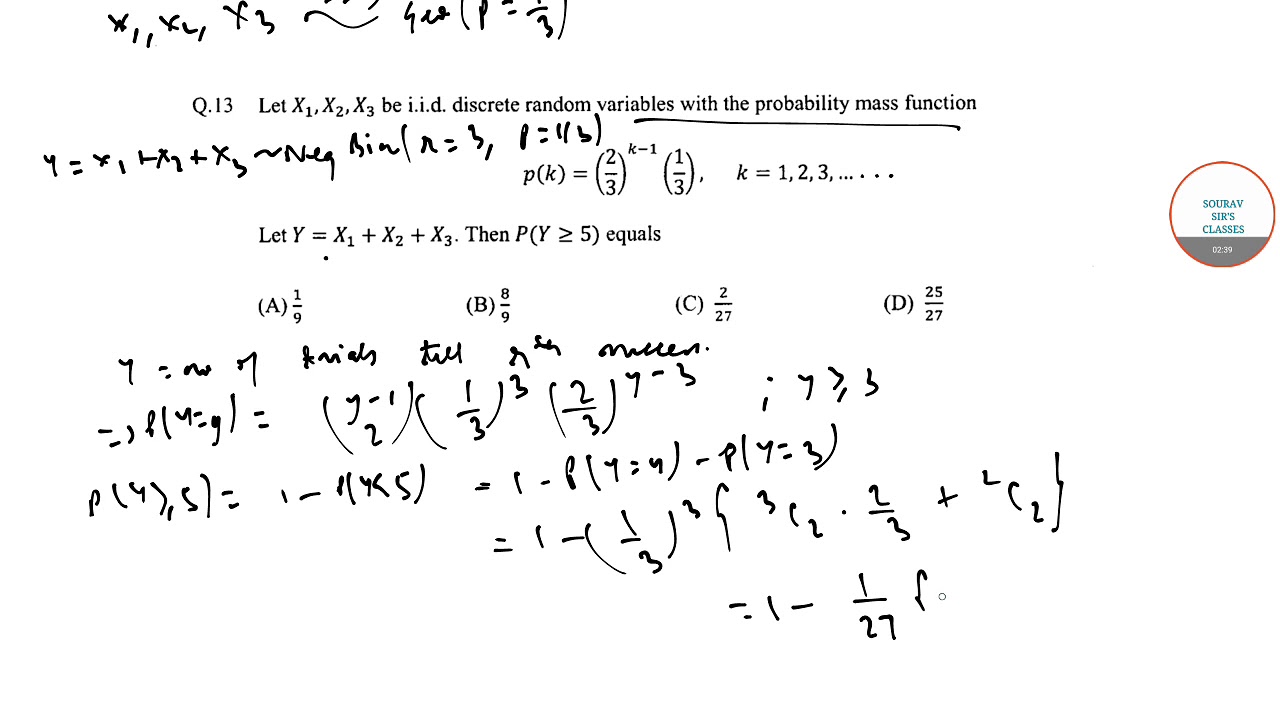 x₁, x₂, x₃ ~ Geo(p = 1/3)
Q.13 Let X₁, X₂, X₃ be i.i.d. discrete random variables with the probability mass function
Y = x₁ + x₂ + x₃ ~ Neg Bin(r = 3, p = 1/3)
p(k) = (2/3)^{k−1} (1/3), k = 1, 2, 3, ... . . .
SOURAV
SIR'S
CLASSES
02:39
Let Y = X₁ + X₂ + X₃. Then P(Y ≥ 5) equals
(A) 1/9 (B) 8/9 (C) 2/27 (D) 25/27
Y = no of trials till rth success.
⇒ P(Y=y) = (y−1 2) (1/3)³ (2/3)^{y−3} ; y ≥ 3
P(Y ≥ 5) = 1 − P(Y < 5) = 1 − P(Y = 4) − P(Y = 3)
= 1 − (1/3)³ { ³C₂ · 2/3 + ²C₂ }
= 1 − 1/27 {